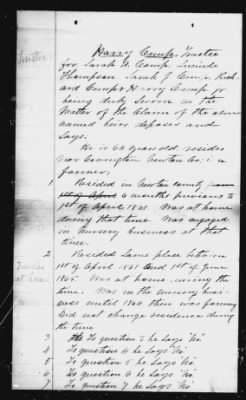 Harry Camp Trustee
for Sarah A. Camp Lucinda
Thompson Sarah J Camp, Rich-
ard Camp & Harry Camp Jr
being duly sworn in the
Matter of the Claim of the above
named heirs deposes and
Says;
He is 64 years old resides
near Covington Newton Co; is a
farmer;
1 Resided in Newton County from
1st of April 6 months previous to
1st of April 1861. Was at home
during that time. Was engaged
in nursery business at that
time.
2 Resided Same place between
1st of April 1861 and 1st of June
1865. Was at home during the
time. Was in the nursery busi-
ness until 1864 then was farming
did not change residence during
the time
3 To question 3 he says "No"
4 To question 4 he says "No"
5 To question 5 he says "No"
6 To question 6 he says "No"
7 To question 7 he says "No"